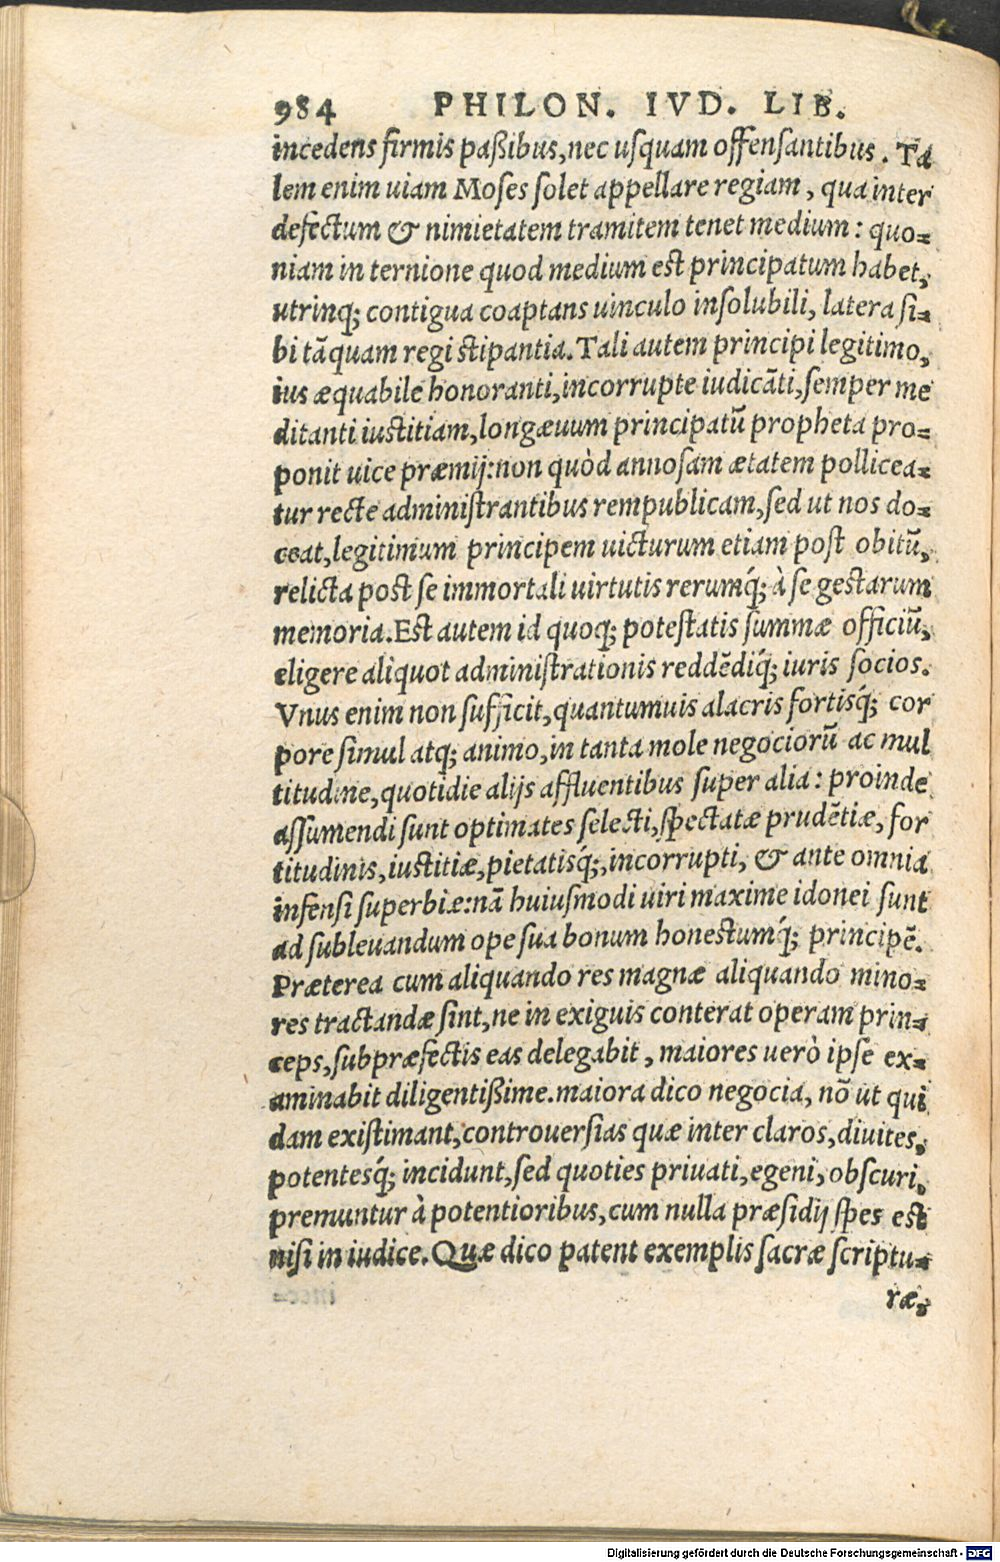 984 PHILON. IVD. LIB.
incedens firmis paßibus, nec usquam offensantibus. Ta
lem enim uiam Moses solet appellare regiam, qua inter
defectum & nimietatem tramitem tenet medium: quo=
niam in ternione quod medium est principatum habet,
utrinq; contigua coaptans uinculo insolubili, latera si=
bi tãquam regi stipantia. Tali autem principi legitimo,
ius æquabile honoranti, incorrupte iudicãti, semper me
ditanti iustitiam, longæuum principatũ propheta pro=
ponit uice præmij: non quòd annosam ætatem pollicea=
tur recte administrantibus rempublicam, sed ut nos do=
ceat, legitimum principem uicturum etiam post obitũ,
relicta post se immortali uirtutis rerumq́; à se gestarum
memoria. Est autem id quoq; potestatis summæ officiũ,
eligere aliquot administrationis reddẽdiq́; iuris socios.
Vnus enim non sufficit, quantumuis alacris fortisq́; cor
pore simul atq; animo, in tanta mole negociorũ ac mul
titudine, quotidie alijs affluentibus super alia: proinde
assumendi sunt optimates selecti, spectatæ prudẽtiæ, for
titudinis, iustitiæ, pietatisq́;, incorrupti, & ante omnia
infensi superbiæ: nã huiusmodi uiri maxime idonei sunt
ad subleuandum ope sua bonum honestumq́; principẽ.
Præterea cum aliquando res magnæ aliquando mino=
res tractandæ sint, ne in exiguis conterat operam prin=
ceps, subpræfectis eas delegabit, maiores uerò ipse ex=
aminabit diligentißime. maiora dico negocia, nõ ut qui
dam existimant, controuersias quæ inter claros, diuites,
potentesq́; incidunt, sed quoties priuati, egeni, obscuri,
premuntur à potentioribus, cum nulla præsidij spes est
nisi in iudice. Quæ dico patent exemplis sacræ scriptu=
ræ,
Digitalisierung gefördert durch die Deutsche Forschungsgemeinschaft - DFG